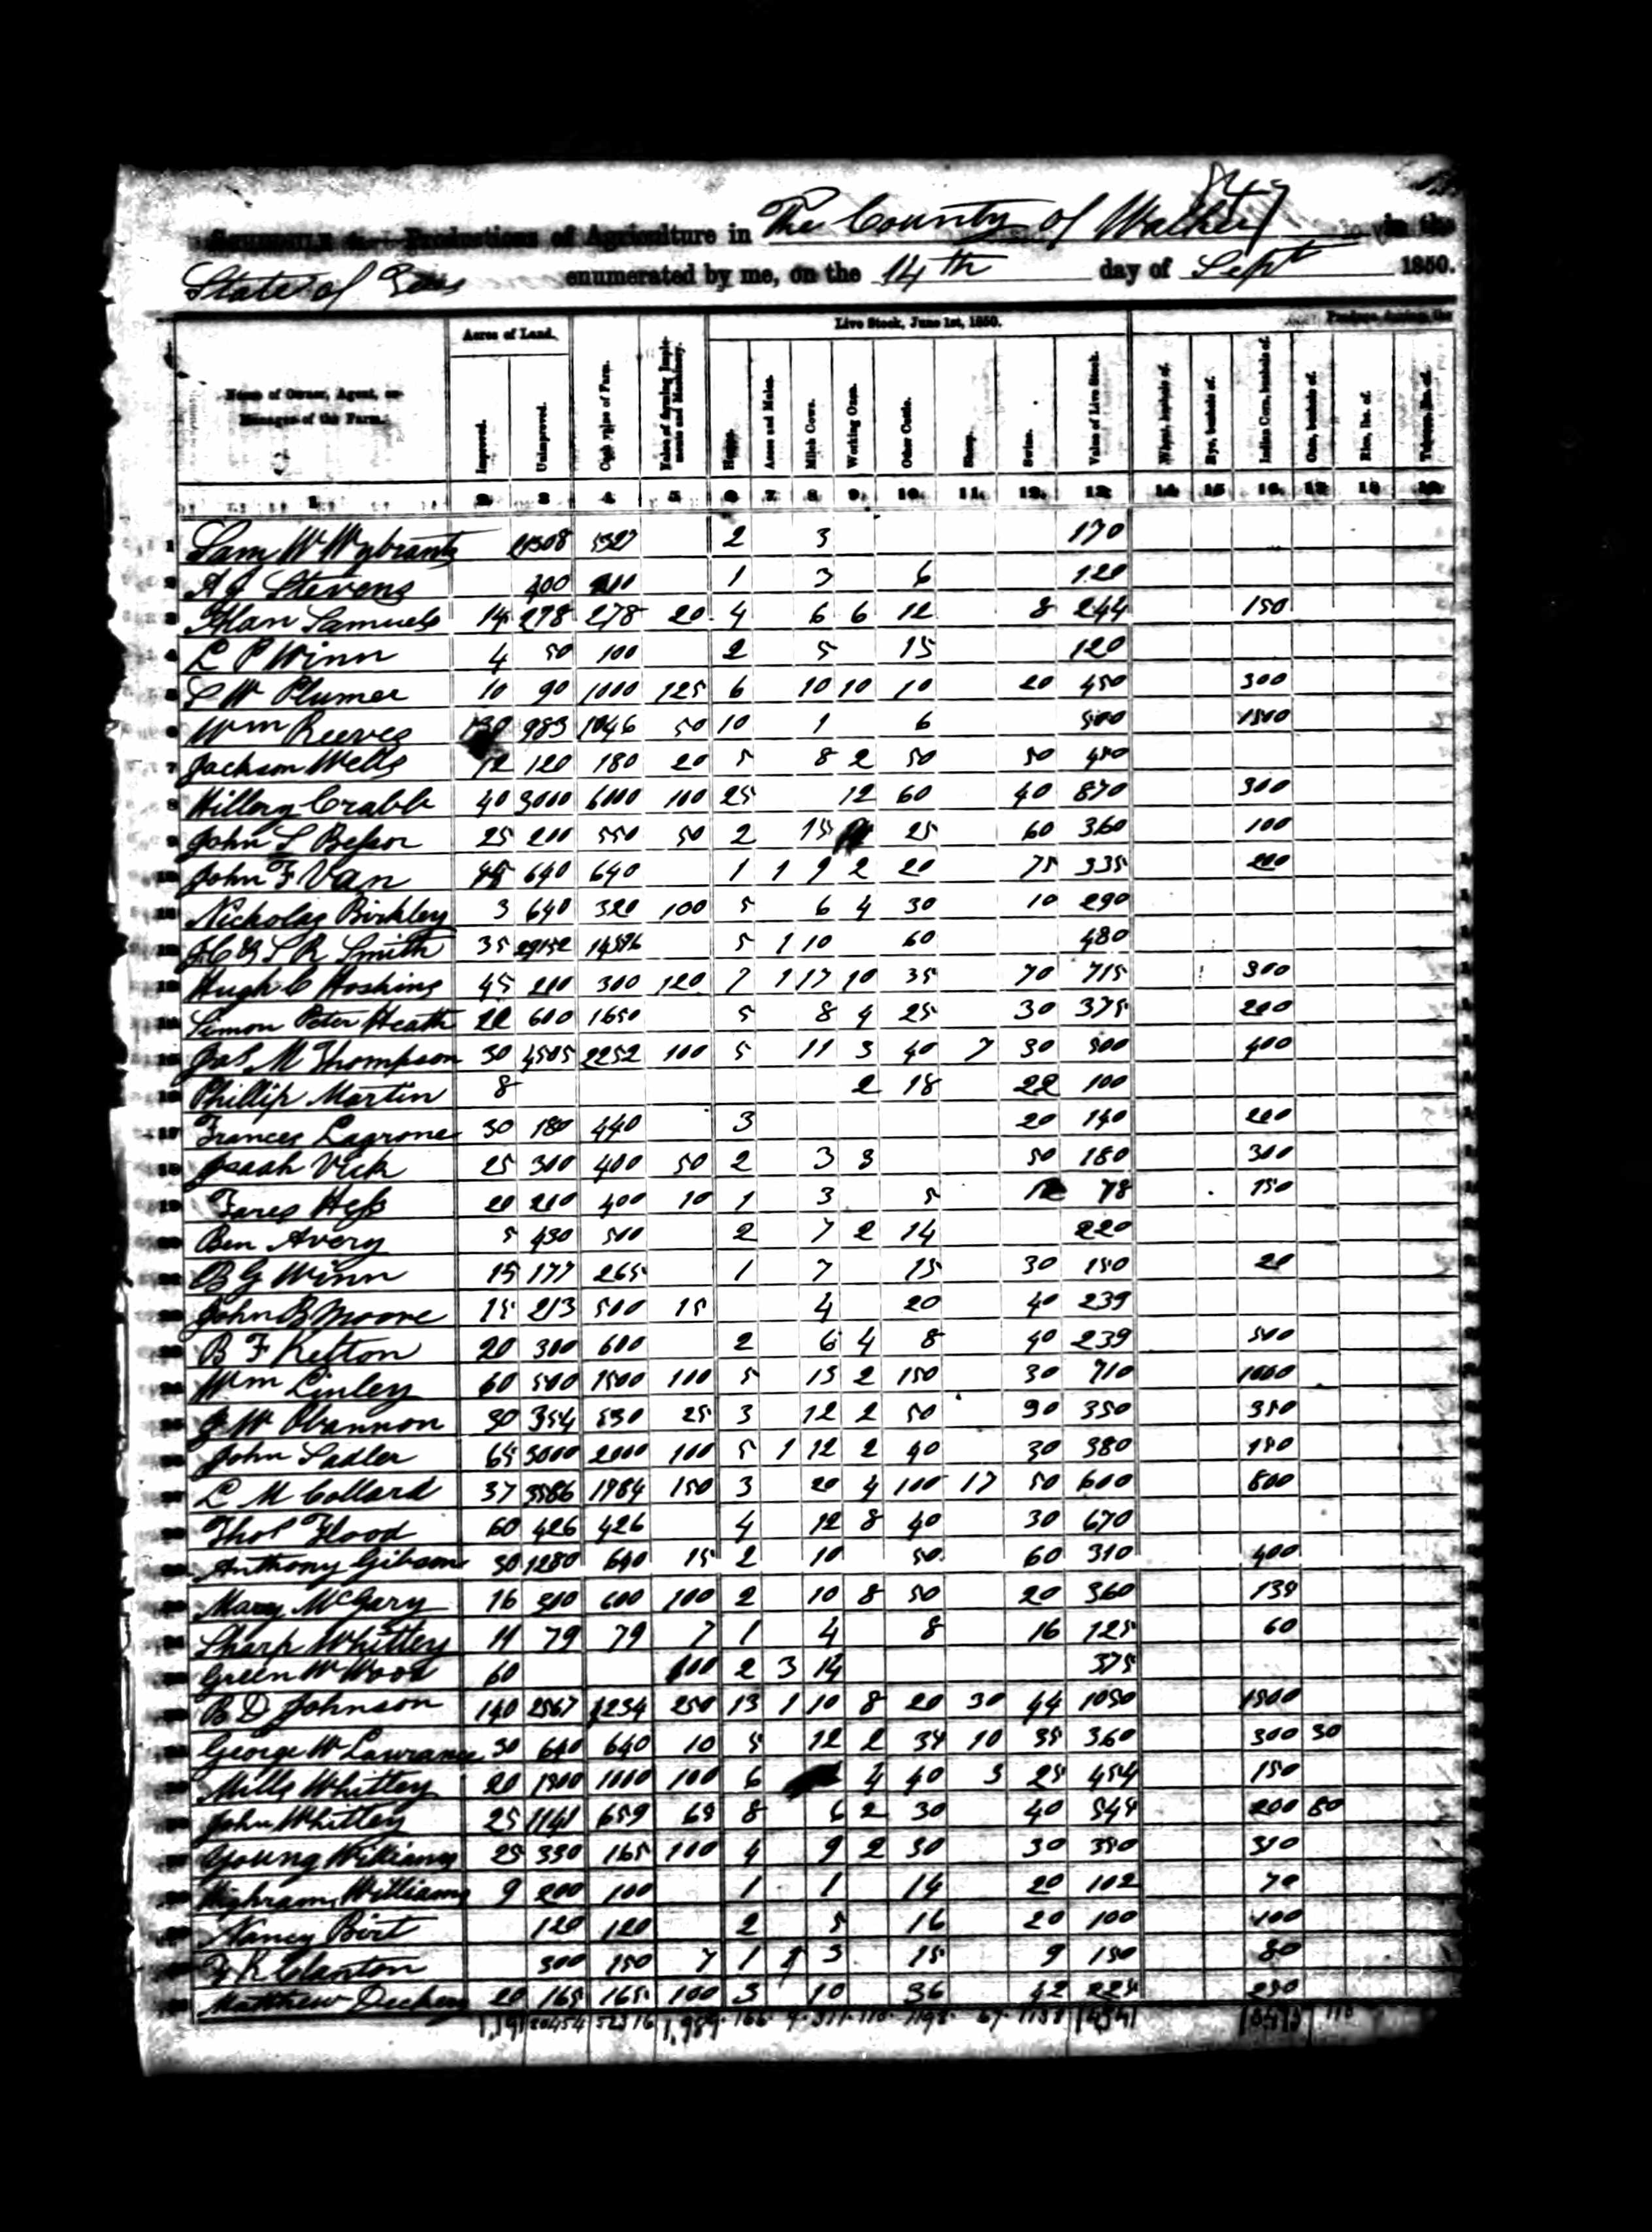 847
Schedule 4. Productions of Agriculture in The County of Walker in the
State of Texas enumerated by me, on the 14th day of Sept 1850.
Acres of Land. Live Stock, June 1st, 1850. Produce during the
Name of Owner, Agent, or Manager of the Farm. Improved. Unimproved. Cash value of Farm. Value of farming Implements and Machinery. Horses. Asses and Mules. Milch Cows. Working Oxen. Other Cattle. Sheep. Swine. Value of Live Stock. Wheat, bushels of. Rye, bushels of. Indian Corn, bushels of. Oats, bushels of. Rice, lbs. of. Tobacco, lbs. of.
1. 2 3 4 5 6 7 8 9. 10. 11. 12. 13 14 15 16. 17 18 19
1 Samy W Wybrants 5327 2 3 170
2 A J Stevens 400 1 3 6 120
3 Samuels 14 278 278 20 4 6 6 12 8 244 150
4 L P Winn 4 50 100 2 5 15 120
5 S W Plumer 10 90 1000 125 6 10 10 10 20 450 300
6 Wm Reeves 130 983 1046 50 10 1 6 500 1500
7 Jackson Wells 12 120 180 20 5 8 2 50 50 450
8 Hillery Crabb 40 3000 6000 100 25 12 60 40 870 300
9 John S Besser 25 200 550 50 2 15 25 60 360 100
10 John F Van 45 640 640 1 1 9 2 20 75 335 200
11 Nicholas Birkley 3 640 320 100 5 6 4 30 10 290
12 J C & S R Smith 35 29152 14576 5 1 10 60 480
13 Hugh C Hoskins 45 200 300 120 7 1 17 10 35 70 715 300
14 Simon Peter Heath 22 600 1650 5 8 4 25 30 375 200
15 Jas M Thompson 30 4505 2252 100 5 11 3 40 7 30 500 400
16 Phillip Martin 8 2 18 22 100
17 Frances Lagrone 30 180 440 3 20 140 200
18 Isaah Vick 25 300 400 50 2 3 3 50 180 300
19 Fares Hess 20 200 400 10 1 3 5 12 78 150
20 Ben Avery 5 430 500 2 7 2 14 220
21 B G Winn 15 177 265 1 7 15 30 150 20
22 John B Moore 15 213 500 15 4 20 40 239
23 B F Kefton 20 300 600 2 6 4 8 40 239 500
24 Wm Linley 60 500 1500 100 5 15 2 150 30 710 1000
25 G W Obannon 30 354 530 25 3 12 2 50 90 350 350
26 John Sadler 65 3000 2000 100 5 1 12 2 40 30 380 150
27 L M Collard 37 3586 1784 150 3 20 4 100 17 50 600 800
28 Thos Flood 60 426 426 4 12 8 40 30 670
29 Anthony Gibson 30 1280 640 15 2 10 50 60 310 400
30 Mary McGary 16 300 600 100 2 10 8 50 20 360 135
31 Sharp Whitley 11 79 79 7 1 4 8 16 125 60
32 Green W Wood 60 100 2 3 14 375
33 B D Johnson 140 2567 1234 250 13 1 10 8 20 30 44 1050 1500
34 George W Lawrance 30 640 640 10 5 12 2 34 10 35 360 300 30
35 Mills Whitley 20 1500 1000 100 6 4 40 3 25 454 150
36 John Whitley 25 1141 659 65 8 6 2 30 40 545 200 80
37 Young Williams 25 330 165 100 4 9 2 30 30 350 350
38 Highram Williams 9 200 100 1 1 14 20 102 70
39 Nancy Birt 120 120 2 5 16 20 100 100
40 F K Clanton 300 150 7 1 1 3 15 9 150 80
41 Matthew Deckers 20 165 165 100 3 10 36 42 224 250
1,989 166 9 311 110 1198 67 1138 110